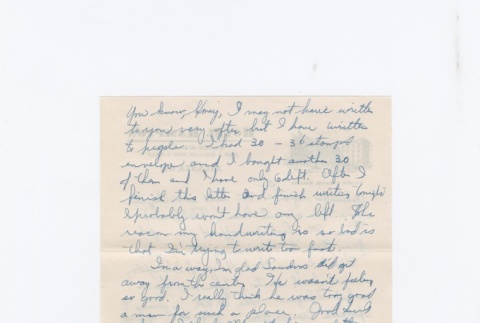 You know, Honey, I may not have written
to you very often but I have written
to people. I had 30 - 3¢ stamped
envelope and I bought another 30
of them and I have only 6 left. After I
finish this letter and finish writing tonight
I probably won't have any left. The
reason my handwriting is so bad is
that I'm trying to write too fast.
In a way, I'm glad Sandros did get
away from the center. He wasn't feeling
so good. I really think he was too good
a man for such a place. Good